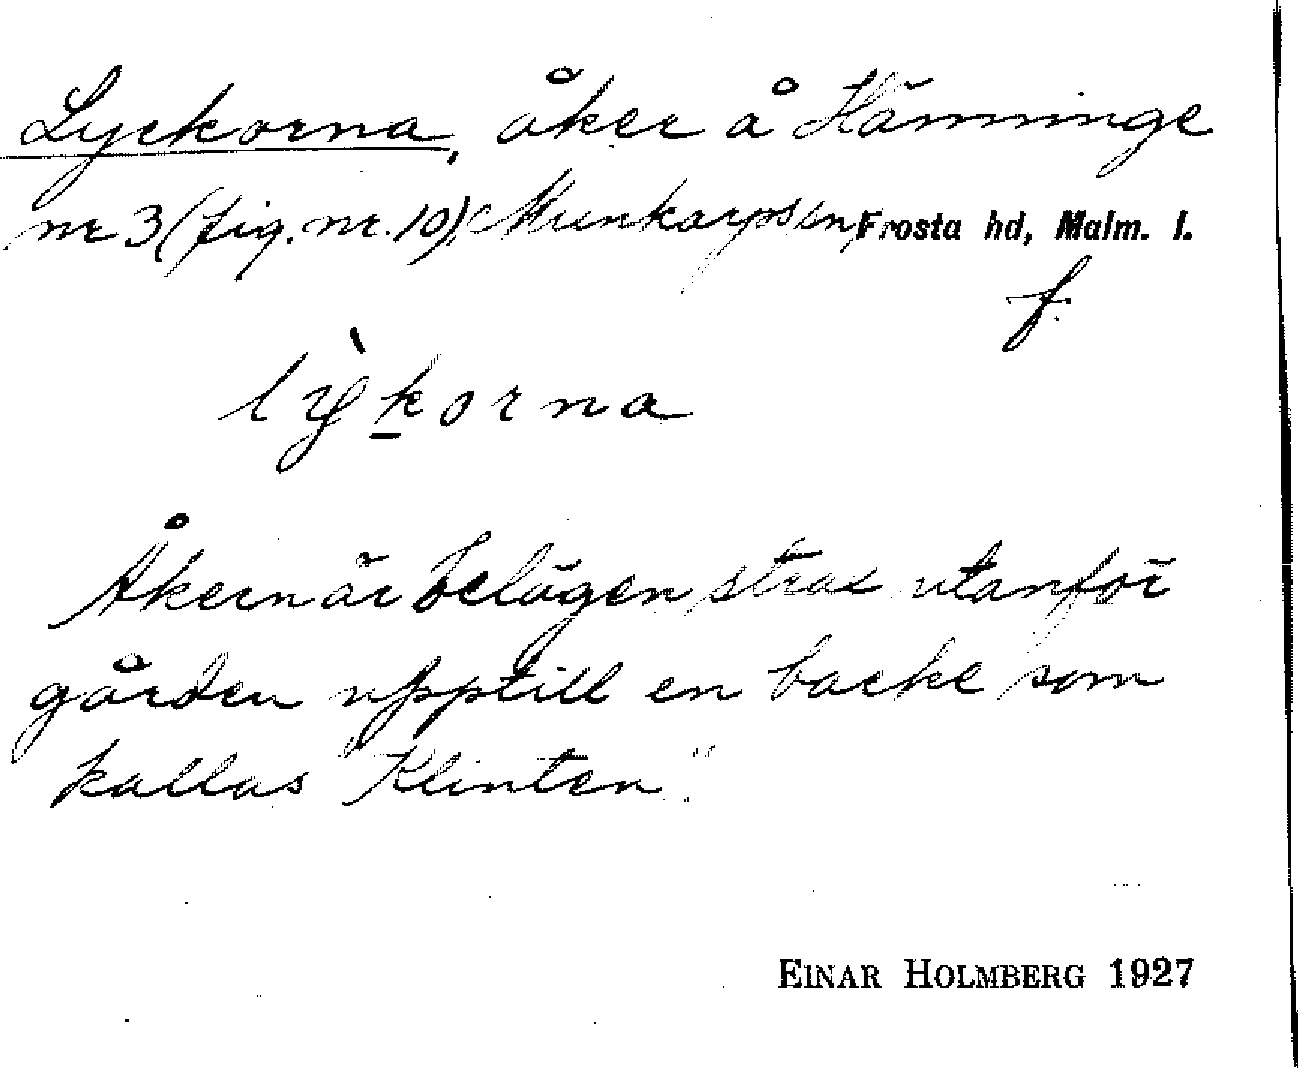 Lyckorna, åker å Hänninge
nr 3 (fig. nr. 10), Munkarps sn, Frosta hd, Malm. l.
f.
lỳkorna
Åkern är belägen strax utanför
gården upptill en backe som
kallas "Klinten".
EINAR HOLMBERG 1927